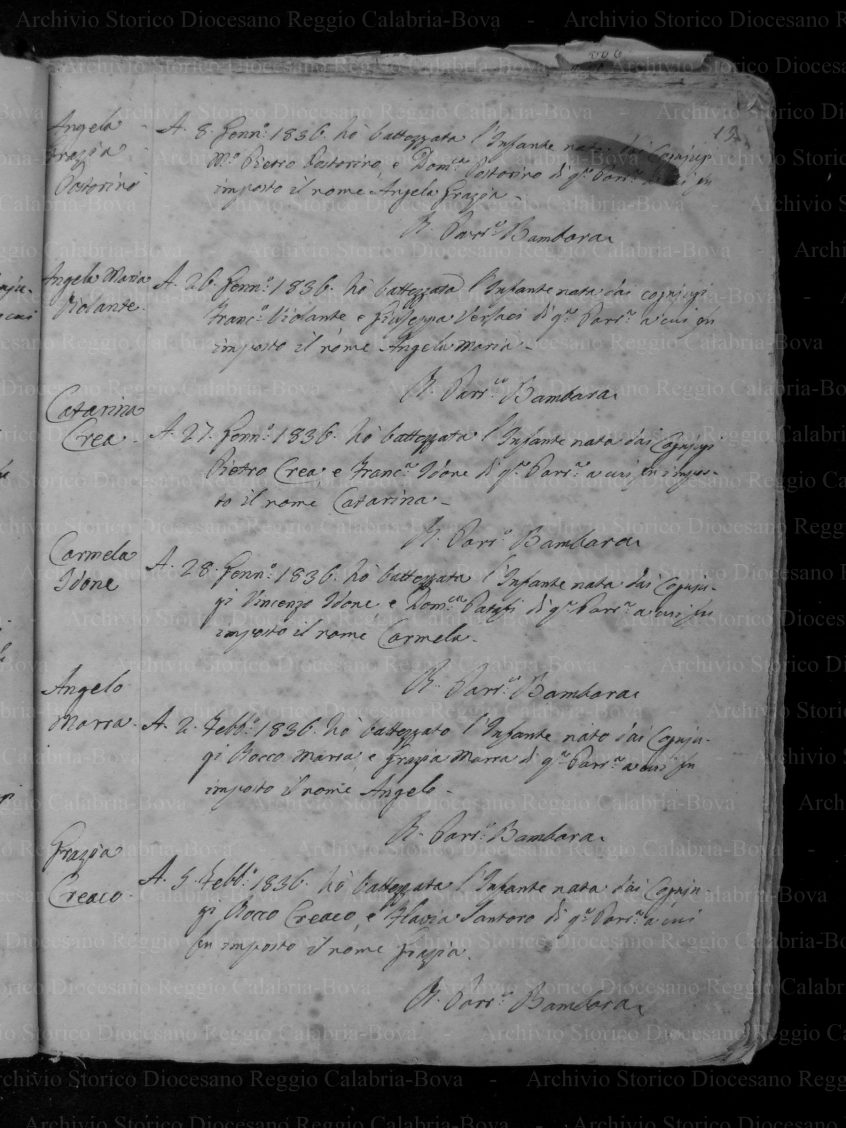 12
Angela
Grazia
Postorino
A. 8. Genn.o 1836. hò battezzata l'Infante nata dai Conjugi
M.o Pietro Postorino, e Dom.ca Postorino di q.a Parr.a a cui fu
imposto il nome Angela Grazia
Il Parr.o Bambara
Angela Maria
Violante.
A. 26. Genn.o 1836. hò battezzata l'Infante nata dai conjugi
Franc.o Violante e Giuseppa Versaci di q.a Parr.a a cui fu
imposto il nome Angela Maria.
Il Parr.o Bambara
Catarina
Crea.
A. 27. Genn.o 1836. hò battezzata l'Infante nata dai Conjugi
Pietro Crea, e Franc.a Idone di q.a Parr.a a cui fu impos-
to il nome Catarina.
Il Parr.o Bambara
Carmela
Idone
A. 28. Genn.o 1836. hò battezzata l'Infante nata dai Conju-
gi Vincenzo Idone e Dom.ca Patafi di q.a Parr.a a cui fu
imposto il nome Carmela.
Il Parr.o Bambara
Angelo
Marra.
A. 2. Febb.o 1836. hò battezzato l'Infante nato dai Conju-
gi Rocco Marra, e Grazia Marra di q.a Parr.a a cui fu
imposto il nome Angelo.
Il Parr.o Bambara
Grazia
Creaco.
A. 5. Febb.o 1836. hò battezzata l'Infante nata dai Conju-
gi Rocco Creaco, e Flavia Santoro di q.a Parr.a a cui
fu imposto il nome Grazia.
Il Parr.o Bambara
Archivio Storico Diocesano Reggio Calabria-Bova